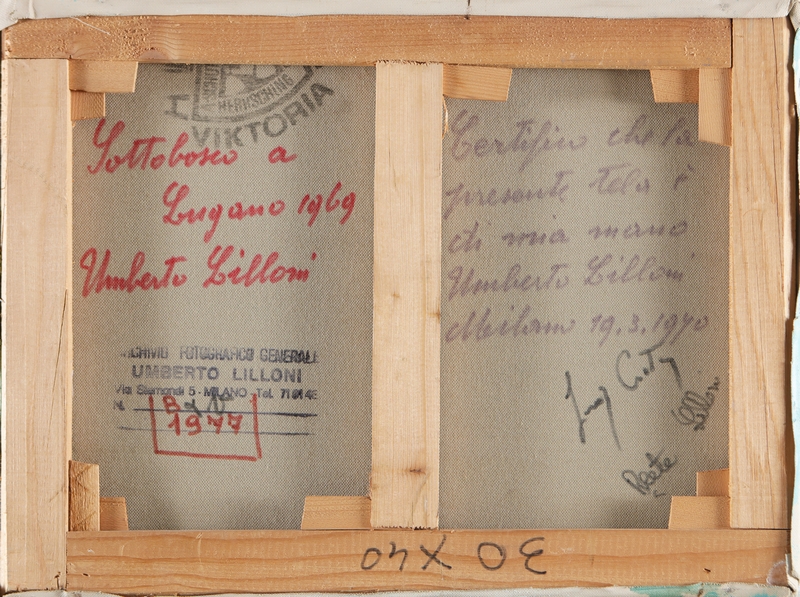 HERVSCHING
VIKTORIA
Sottobosco a
Lugano 1969
Umberto Lilloni
ARCHIVIO FOTOGRAFICO GENERALE
UMBERTO LILLONI
Via Sismondi 5 - MILANO - Tel.
N.
1977
Certifico che la
presente tela è
di mia mano
Umberto Lilloni
Milano 19.3.1970
Lilloni
30 X 40